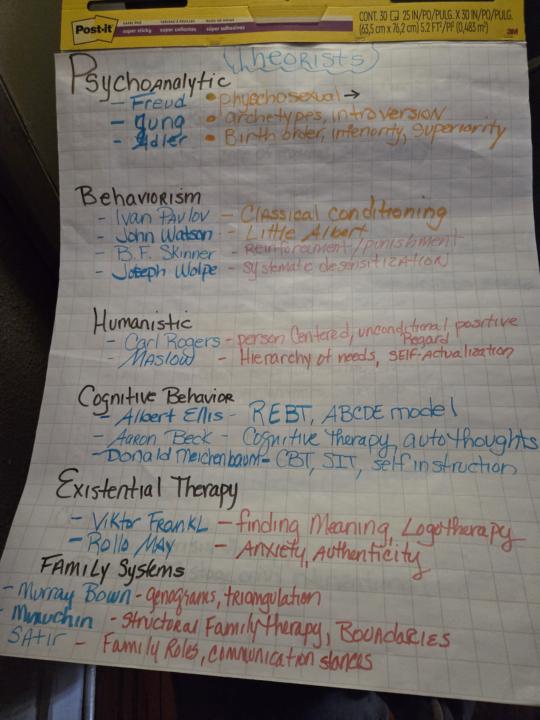 Post-it
super sticky super collantes super adhesivos
CONT. 30 25 IN/PO/PULG. X 30 IN/PO/PULG.
(63,5 cm x 76,2 cm) 5.2 FT²/PI² (0,483 m²)
3M
Theorists
Psychoanalytic
- Freud • phychosexual →
- Jung • archetypes, introversion
- Adler • Birth order, inferiority, superiority
Behaviorism
- Ivan Pavlov - Classical conditioning
- John Watson - Little Albert
- B.F. Skinner - Reinforcement/punishment
- Joseph Wolpe - systematic desensitization
Humanistic
- Carl Rogers - person Centered, unconditional positive
Regard
- Maslow - Hierarchy of needs, SELF-Actualization
Cognitive Behavior
- Albert Ellis - REBT, ABCDE model
- Aaron Beck - Cognitive therapy, auto thoughts
- Donald Meichenbaum - CBT, SIT, self instruction
Existential Therapy
- Viktor Frankl - finding Meaning, Logotherapy
- Rollo May - Anxiety, Authenticity
Family Systems
- Murray Bown - genograms, triangulation
- Minuchin - Structural Family therapy, Boundaries
SATir - Family Roles, communication stances